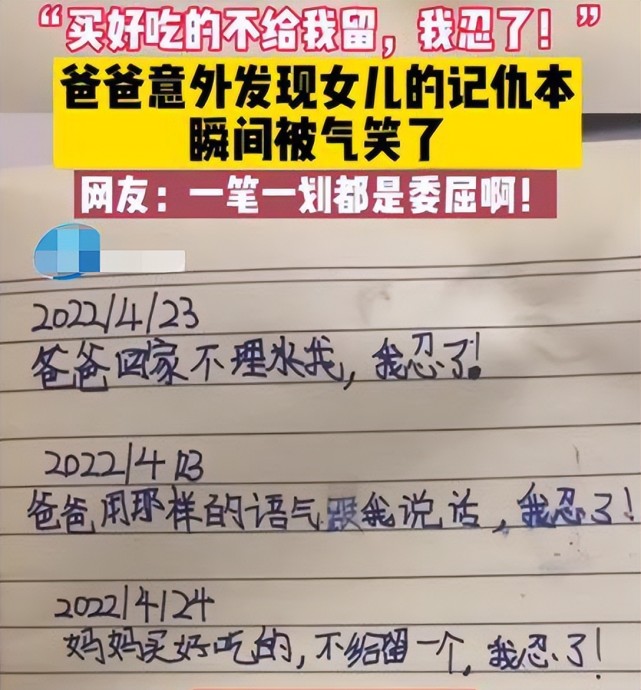 “买好吃的不给我留，我忍了！”
爸爸意外发现女儿的记仇本
瞬间被气笑了
网友：一笔一划都是委屈啊！
2022/4/23
爸爸回家不理水我，我忍了！
2022/4
爸爸用那样的语气跟我说话，我忍了！
2022/4/24
妈妈买好吃的，不给留一个，我忍了！